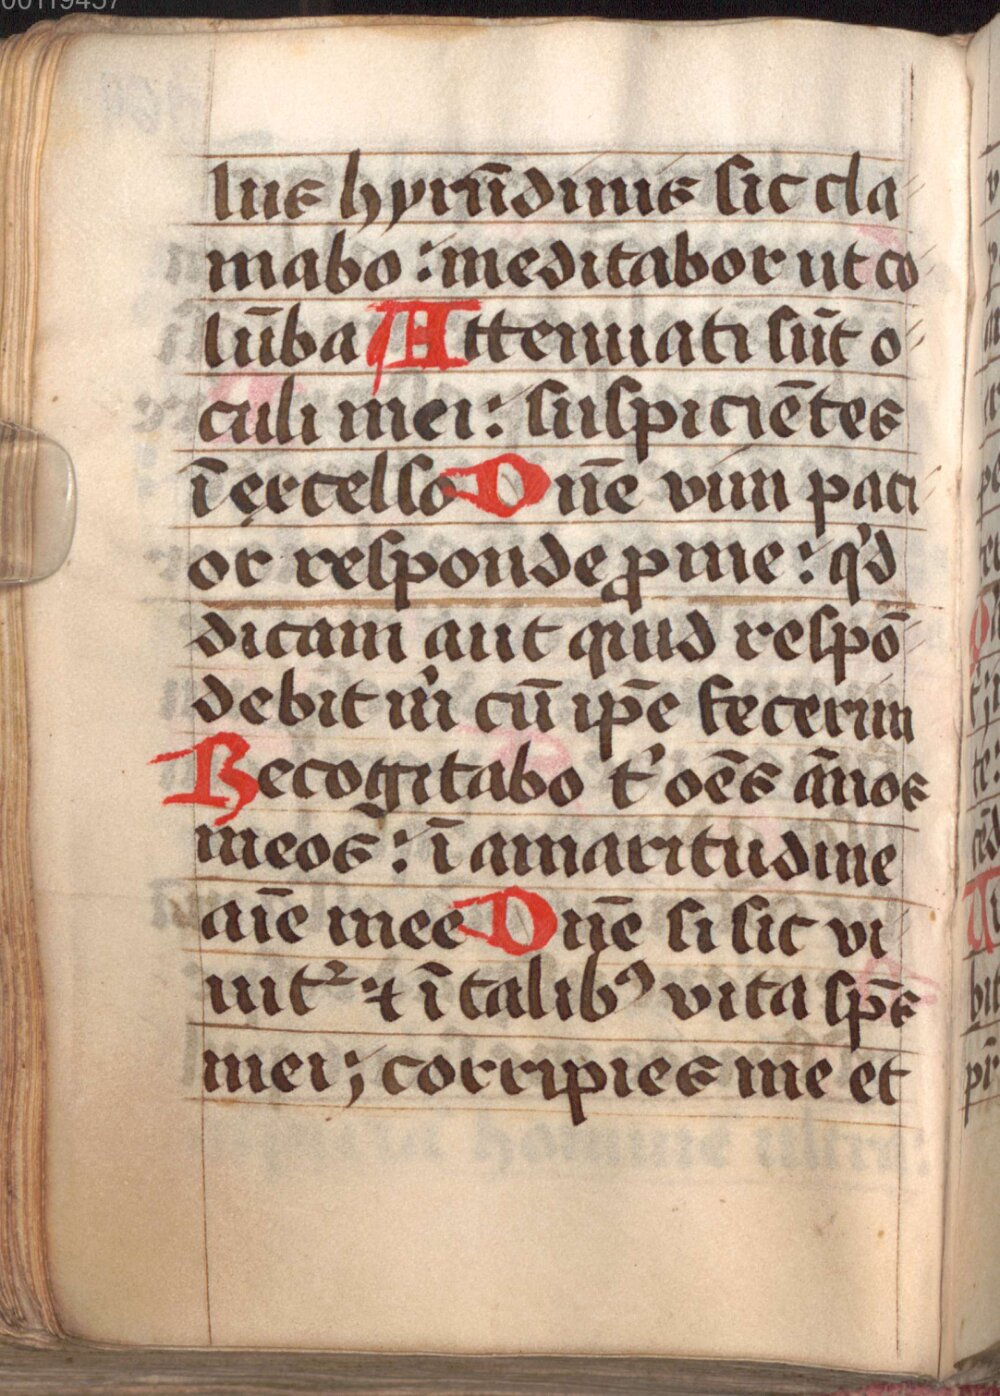 lus hyrūdinis sic cla
mabo : meditabor ut co
lūba Attenuati sūt o
culi mei : suspiciētes
ī excelso Dn̄e vim pati
or responde ꝓ me : q'd
dicam aut quid respō
debit m'i cū ip̄e fecerim
Recogitabo t' oēs ānos
meos : ī amaritudine
aīe mee Dn̄e si sic vi
uit᷑ ⁊ ī talibꝰ vita sp̄s
mei ; corripies me et